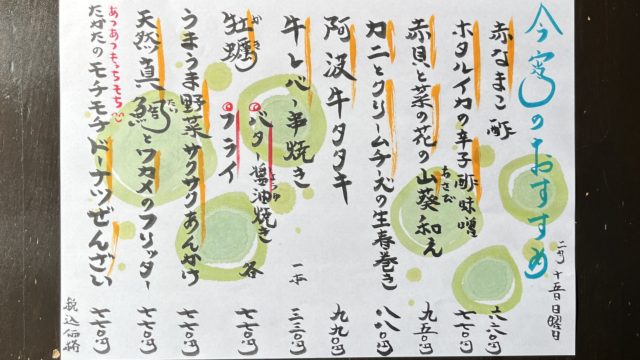 今宵のおすすめ
二月 十五日 日曜日
赤なまこ酢 八八〇円
ホタルイカの辛子酢味噌 七七〇円
赤貝と菜の花の山葵和え わさび 九五〇円
カニとクリームチーズの生春巻き 八八〇円
阿波牛タタキ 九九〇円
牛レバー串焼き 一本 三三〇円
牡蠣 かき バター醤油焼き しょうゆ フライ 各 七七〇円
うまうま野菜サクサクあんかけ 七七〇円
天然真鯛とワカメのフリッター たい 七七〇円
あつあつもっちもち
たかたのモチモチドーナツぜんざい 七七〇円
税込価格